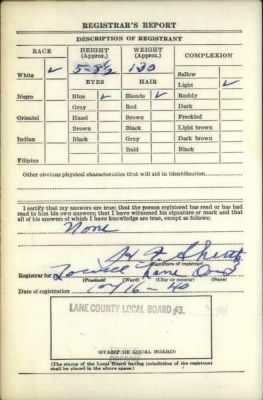 REGISTRAR'S REPORT
DESCRIPTION OF REGISTRANT
RACE HEIGHT (Approx.) WEIGHT (Approx.) COMPLEXION
White ✓ 5-8½ 130 Sallow
EYES HAIR Light ✓
Negro Blue ✓ Blonde ✓ Ruddy
Gray Red Dark
Oriental Hazel Brown Freckled
Brown Black Light brown
Indian Black Gray Dark brown
Bald Black
Filipino
Other obvious physical characteristics that will aid in identification
I certify that my answers are true; that the person registered has read or has had
read to him his own answers; that I have witnessed his signature or mark and that
all of his answers of which I have knowledge are true, except as follows:
None
(Signature of registrar)
Registrar for Lowell Lane Ore
(Precinct) (Ward) (City or county) (State)
Date of registration 10/16-40
LANE COUNTY LOCAL BOARD #3.
(STAMP OF LOCAL BOARD)
(The stamp of the Local Board having jurisdiction of the registrant
shall be placed in the above space.)